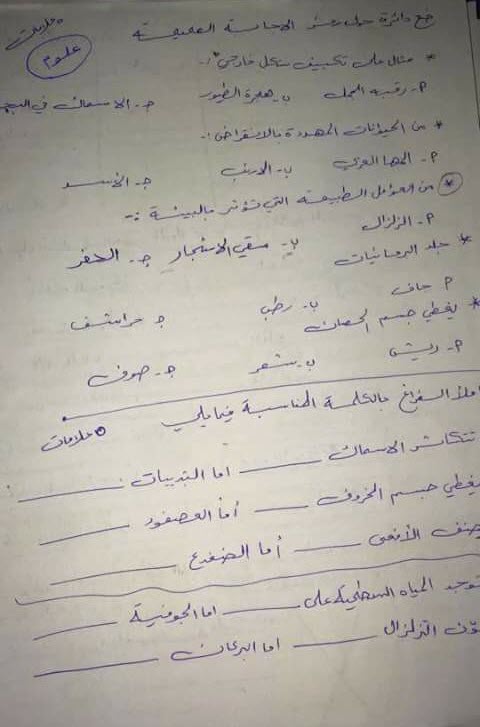 علامات
ضع دائرة حول رمز الاجابة الصحيحة
علوم
* مثال على تكييف سلوكي خارجي :-
أ- رقبة الجمل ب- هجرة الطيور ج- الاسماك في البحر
* من الحيوانات المهددة بالانقراض :-
أ- المها العربي ب- الارنب ج- الأسد
* من العوامل الطبيعية التي تؤثر بالبيئة :-
أ- الزلازل ب- سقي الاشجار ج- الحفر
* جلد البرمائيات
أ جاف ب- رطب ج حراشف
* يغطي جسم الحصان
أ- ريش ب- شعر ج- صوف
املأ الفراغ بالكلمة المناسبة فيما يلي
5 علامات
تتكاثر الاسماك ـــــ اما الثدييات ـــــ
يغطي جسم الخروف ـــــ أما العصفور ـــــ
يصنف الأفعى ـــــ أما الضفدع ـــــ
توجد المياه السطحية على ـــــ اما الجوفية ـــــ
الزلزال ـــــ اما البركان ـــــ